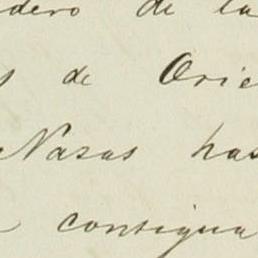 dero de la
s de Orie
Nasas has
consigna